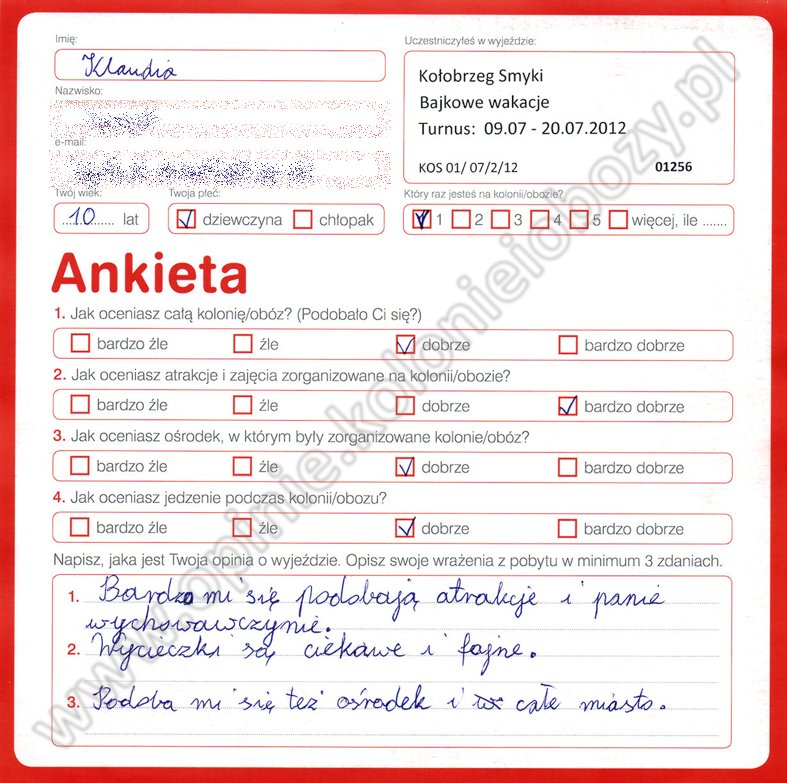 Imię:
Klaudia
Uczestniczyłeś w wyjeździe:
Kołobrzeg Smyki
Bajkowe wakacje
Turnus: 09.07 - 20.07.2012
KOS 01/ 07/2/12 01256
Nazwisko:
e-mail:
Twój wiek:
10 lat
Twoja płeć:
dziewczyna chłopak
Który raz jesteś na kolonii/obozie?
1 2 3 4 5 więcej, ile .......
Ankieta
1. Jak oceniasz całą kolonię/obóz? (Podobało Ci się?)
bardzo źle źle dobrze bardzo dobrze
2. Jak oceniasz atrakcje i zajęcia zorganizowane na kolonii/obozie?
bardzo źle źle dobrze bardzo dobrze
3. Jak oceniasz ośrodek, w którym były zorganizowane kolonie/obóz?
bardzo źle źle dobrze bardzo dobrze
4. Jak oceniasz jedzenie podczas kolonii/obozu?
bardzo źle źle dobrze bardzo dobrze
Napisz, jaka jest Twoja opinia o wyjeździe. Opisz swoje wrażenia z pobytu w minimum 3 zdaniach.
1. Bardzo mi się podobają atrakcje i panie
wychowawczynie.
2. Wycieczki są ciekawe i fajne.
3. Podoba mi się też ośrodek i całe miasto.
www.opinie.kolonieiobozy.pl